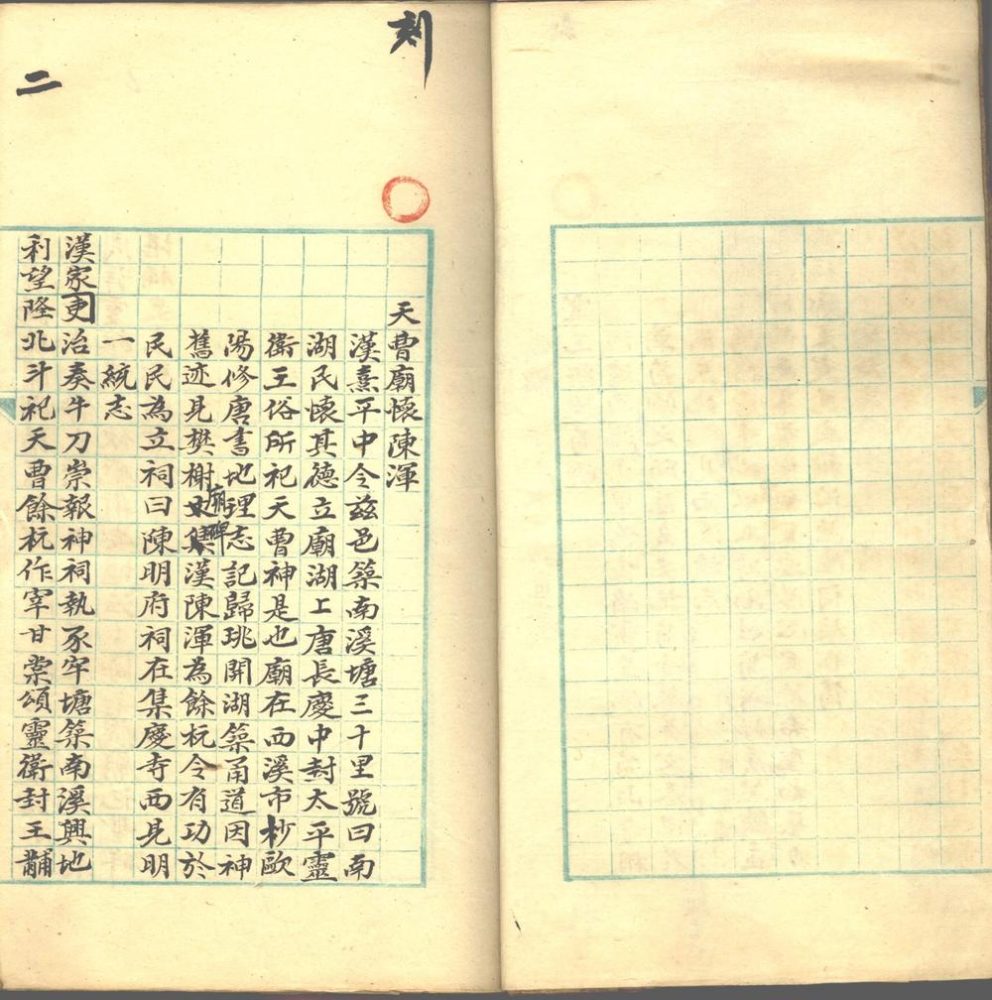 刻
二
天曹廟懷陳渾
漢熹平中令茲邑築南溪塘三十里號曰南
湖民懷其德立廟湖上唐長慶中封太平靈
衛王俗所祀天曹神是也廟在西溪市杪歐
陽修唐書地理志記歸珧開湖築甬道因神
舊迹見樊榭文集廟碑漢陳渾為餘杭令有功於
民民為立祠曰陳明府祠在集慶寺西見明
一統志
漢家吏治奏牛刀崇報神祠執豕牢塘築南溪興地
利望隆北斗祀天曹餘杭作宰甘棠頌靈衛封王黼